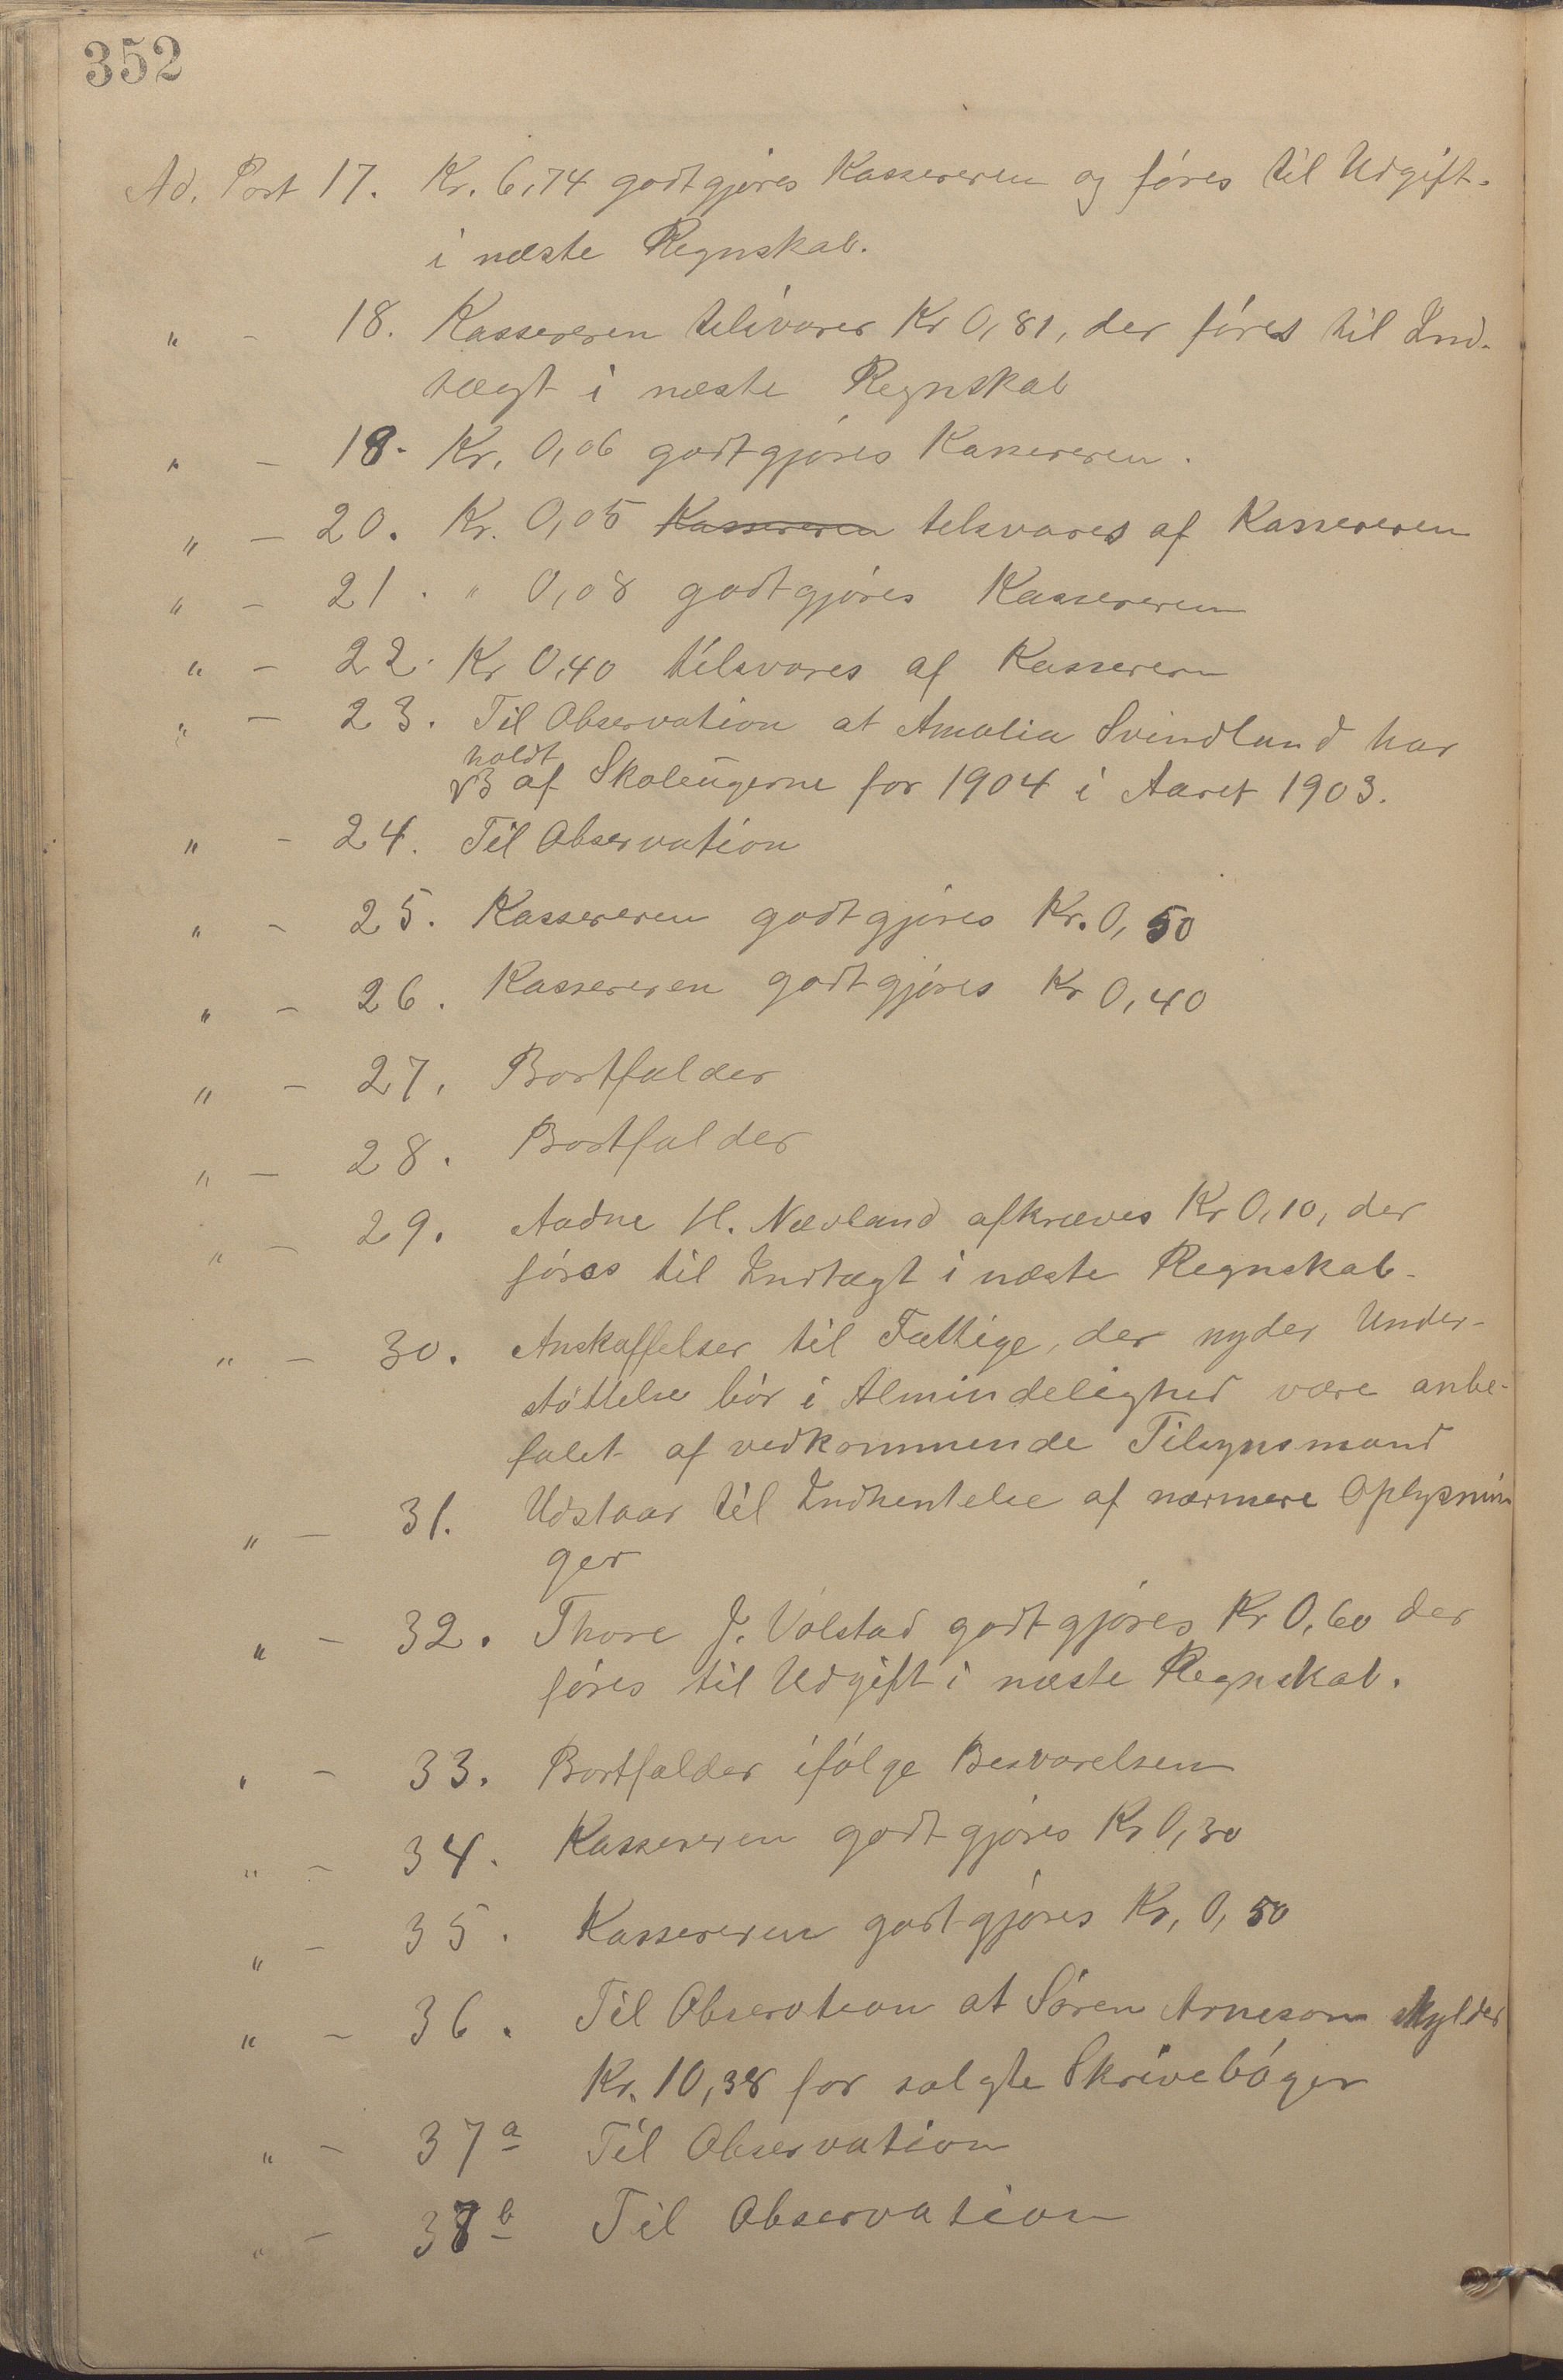 352
Ad. Post 17. Kr. 6,74 godtgjøres Kassereren og føres til Udgift
i næste Regnskab.
" - 18. Kassereren tilsvarer Kr 0,81, der føres til Ind-
tægt i næste Regnskab
" - 18. Kr. 0,06 godtgjøres Kassereren.
" - 20. Kr. 0,05 Kassereren tilsvares af Kassereren
" - 21. " 0,08 godtgjøres Kassereren
" - 22. Kr 0,40 tilsvares af Kassereren
" - 23. Til Observation at Amalia Svindland har
holdt
af Skoleugerne for 1904 i Aaret 1903.
" - 24. Til Observation
" - 25. Kassereren godtgjøres Kr. 0,50
" - 26. Kassereren godtgjøres Kr 0,40
" - 27. Bortfalder
" - 28. Bortfalder
" - 29. Aadne H. Nævland afkræves Kr 0,10, der
føres til Indtægt i næste Regnskab.
" - 30. Anskaffelser til Fattige, der nyder Under-
støttelse bør i Almindelighed være anbe-
falet af vedkommende Tilsynsmand
" - 31. Udstaar til Indhentelse af nærmere Oplysnin
ger
" - 32. Thore J. Valstad godtgjøres Kr 0,60 der
føres til Udgift i næste Regnskab.
" - 33. Bortfalder ifølge Besvarelsen
" - 34. Kassereren godtgjøres Kr 0,30
" - 35. Kassereren godtgjøres Kr, 0,50
" - 36. Til Observation at Søren Arneson skylder
Kr. 10,38 for solgte Skrivebøger
" - 37a Til Observation
" - 37b Til Observation